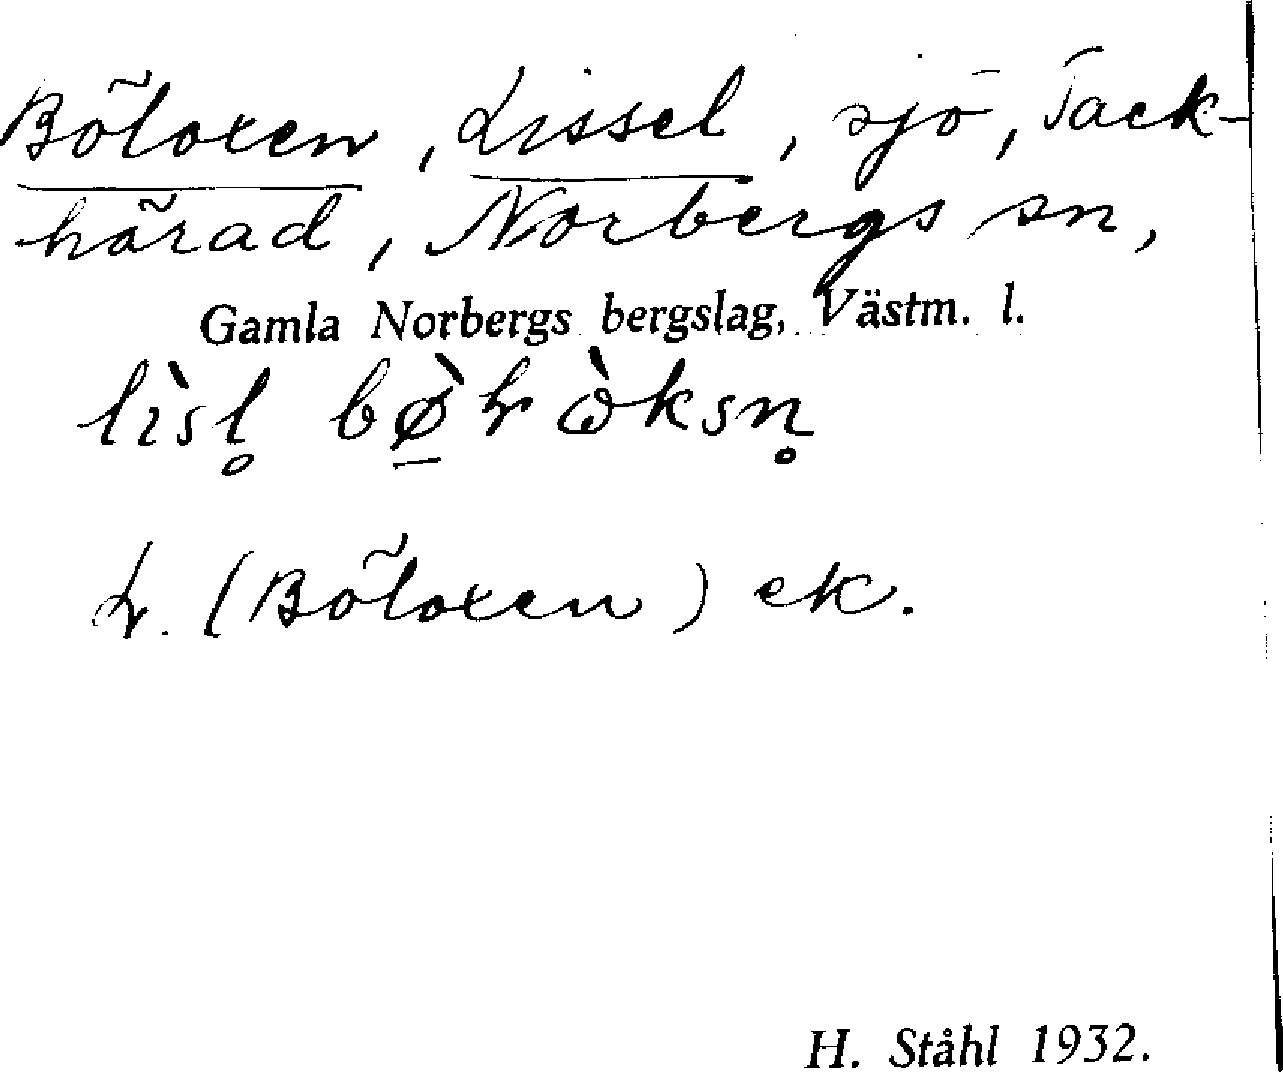 Böloxen, Lissel, sjö, Tack-
härad, Norbergs sn,
Gamla Norbergs bergslag, Västm. l.
lìsl̥ bø̲̀ɫ ὼksn̥
L. (Böloxen) ek.
H. Ståhl 1932.